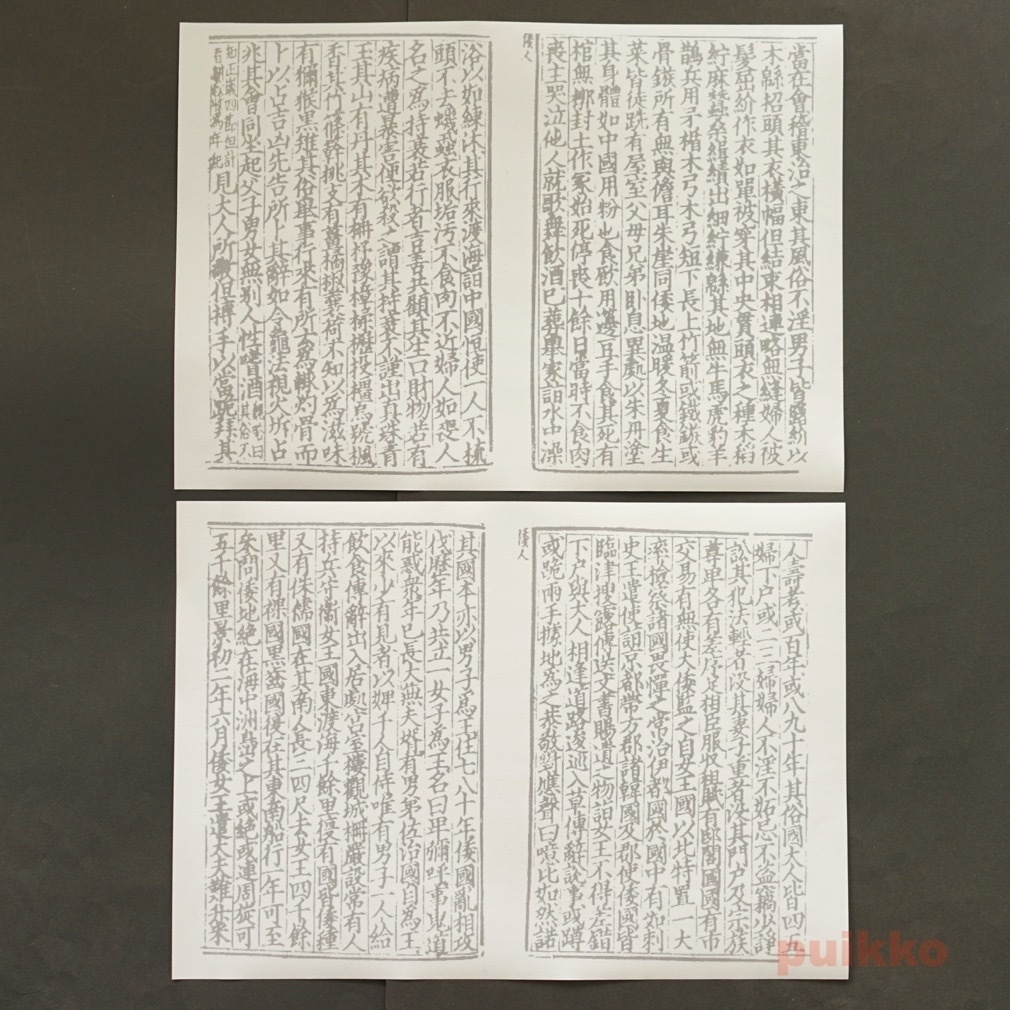 當在會稽東治之東其風俗不淫男子皆露紒以
木緜招頭其衣橫幅但結束相連略無縫婦人被
髮屈紒作衣如單被穿其中央貫頭衣之種禾稻
紵麻蠶桑緝績出細紵縑緜其地無牛馬虎豹羊
鵲兵用矛楯木弓木弓短下長上竹箭或鐵鏃或
骨鏃所有無與儋耳朱崖同倭地温暖冬夏食生
菜皆徒跣有屋室父母兄弟卧息異處以朱丹塗
其身體如中國用粉也食飲用籩豆手食其死有
棺無槨封土作冢始死停喪十餘日當時不食肉
喪主哭泣他人就歌舞飲酒已葬舉家詣水中澡
倭人
浴以如練沐其行來渡海詣中國恒使一人不梳
頭不去蟣蝨衣服垢汚不食肉不近婦人如喪人
名之爲持衰若行者吉善共顧其生口財物若有
疾病遭暴害便欲殺之謂其持衰不謹出真珠青
玉其山有丹其木有柟杼豫樟楺櫪投橿烏號楓
香其竹篠簳桃支有薑橘椒蘘荷不知以爲滋味
有獮猴黑雉其俗舉事行來有所云爲輒灼骨而
卜以占吉凶先告所卜其辭如令龜法視火坼占
兆其會同坐起父子男女無別人性嗜酒魏略曰其俗不
知正歲四節但計春耕秋收爲年紀見大人所敬但搏手以當跪拜其
人壽考或百年或八九十年其俗國大人皆四五
婦下戶或二三婦婦人不淫不妬忌不盜竊少諍
訟其犯法輕者没其妻子重者没其門戶及宗族
尊卑各有差序足相臣服收租賦有邸閣國國有市
交易有無使大倭監之自女王國以北特置一大
率檢察諸國畏憚之常治伊都國於國中有如刺
史王遣使詣京都帶方郡諸韓國及郡使倭國皆
臨津搜露傳送文書賜遺之物詣女王不得差錯
下戶與大人相逢道路逡巡入草傳辭說事或蹲
或跪兩手據地爲之恭敬對應聲曰噫比如然諾
倭人
其國本亦以男子爲王住七八十年倭國亂相攻
伐歷年乃共立一女子爲王名曰卑彌呼事鬼道
能惑衆年已長大無夫壻有男弟佐治國自爲王
以來少有見者以婢千人自侍唯有男子一人給
飲食傳辭出入居處宮室樓觀城柵嚴設常有人
持兵守衞女王國東渡海千餘里復有國皆倭種
又有侏儒國在其南人長三四尺去女王四千餘
里又有裸國黑齒國復在其東南船行一年可至
參問倭地絕在海中洲島之上或絕或連周旋可
五千餘里景初二年六月倭女王遣大夫難升米
puikko